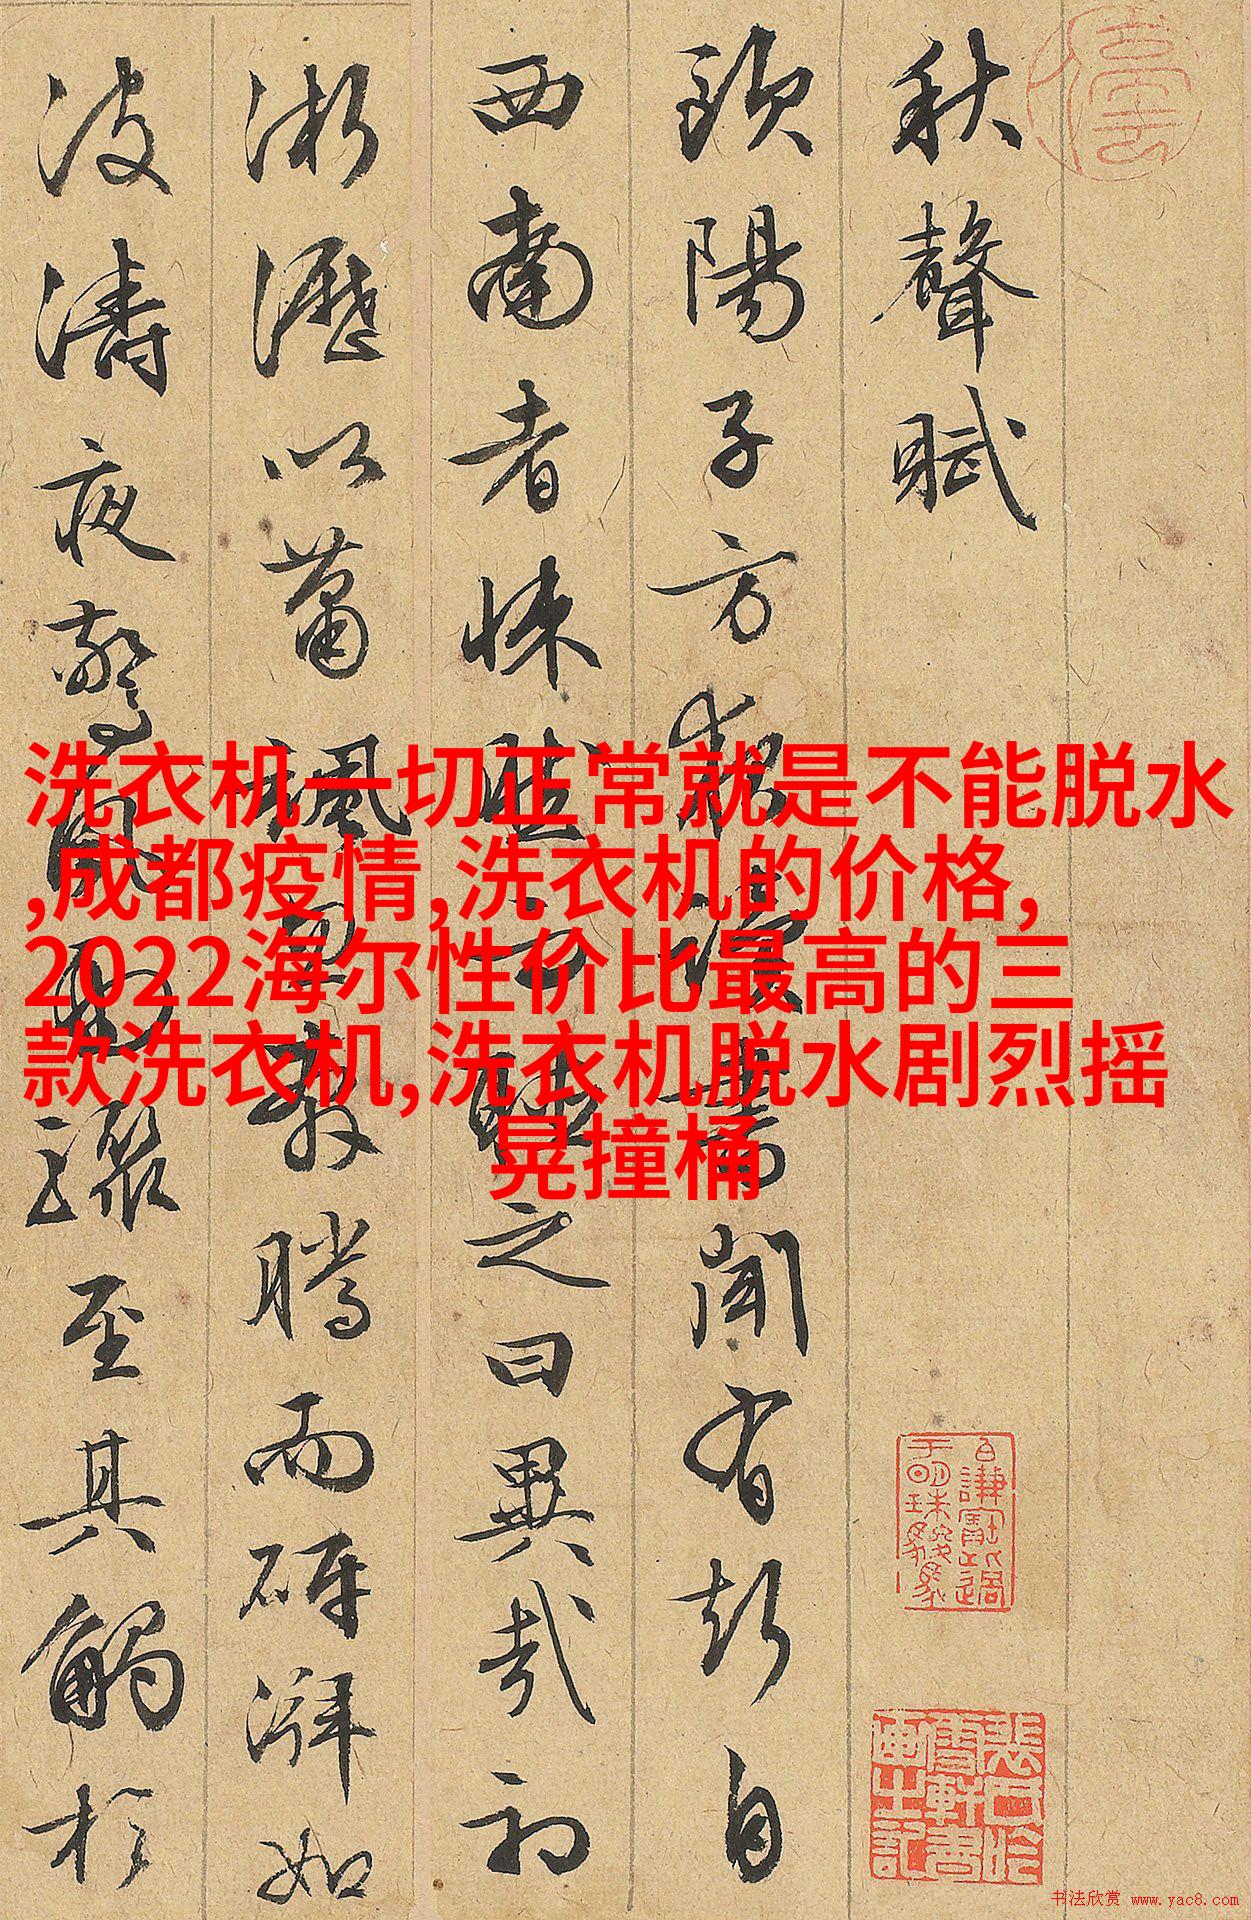 秋聲賦
歐陽子方夜讀書聞有聲自
西南者悚然而聽之曰異哉初
淅瀝以蕭颯奔騰而砰湃如
波濤夜驚風雨驟至其觸於
洗衣机一切正常就是不能脱水
,成都疫情,洗衣机的价格,
2022海尔性价比最高的三
款洗衣机,洗衣机脱水剧烈摇
晃撞桶
书法欣赏 www.yac8.com